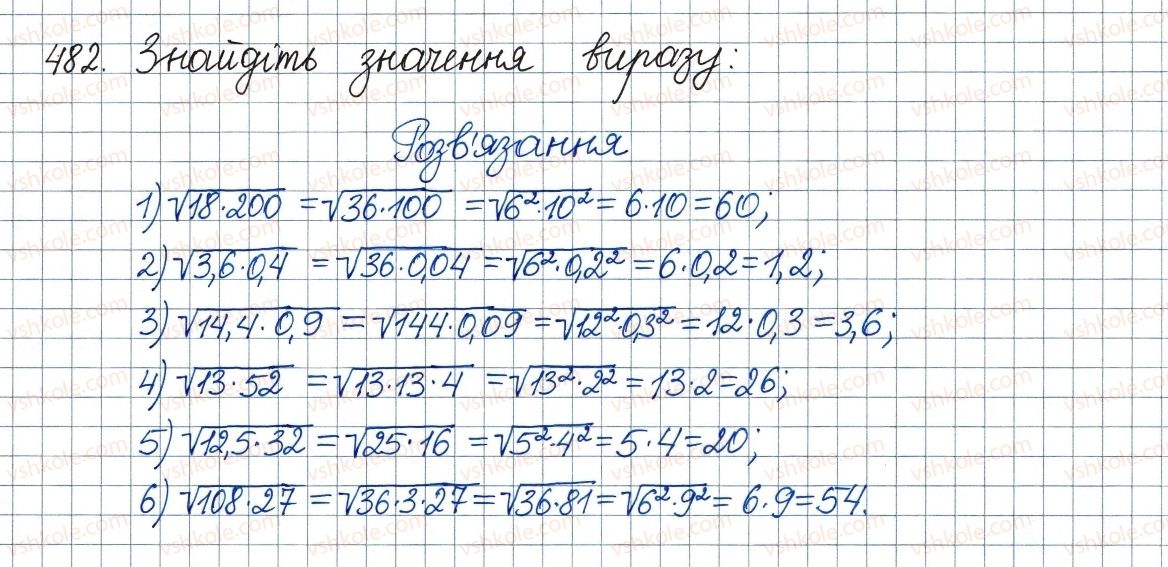 482. Знайдіть значення виразу:
Розв'язання
1) √18·200 = √36·100 = √6²·10² = 6·10 = 60;
2) √3,6·0,4 = √36·0,04 = √6²·0,2² = 6·0,2 = 1,2;
3) √14,4·0,9 = √144·0,09 = √12²·0,3² = 12·0,3 = 3,6;
4) √13·52 = √13·13·4 = √13²·2² = 13·2 = 26;
5) √12,5·32 = √25·16 = √5²·4² = 5·4 = 20;
6) √108·27 = √36·3·27 = √36·81 = √6²·9² = 6·9 = 54.